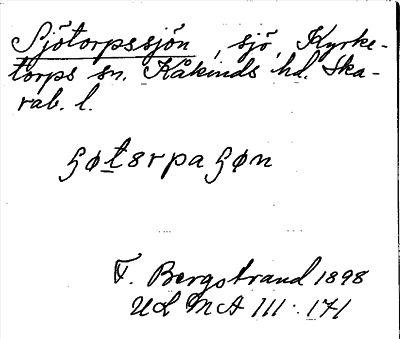 Sjötorpssjön, sjö, Kyrke-
torps sn. Kåkinds hd. Ska-
rab. l.
ʂøtɛrpaʂøn
F. Bergstrand 1898
ULMA 111:171